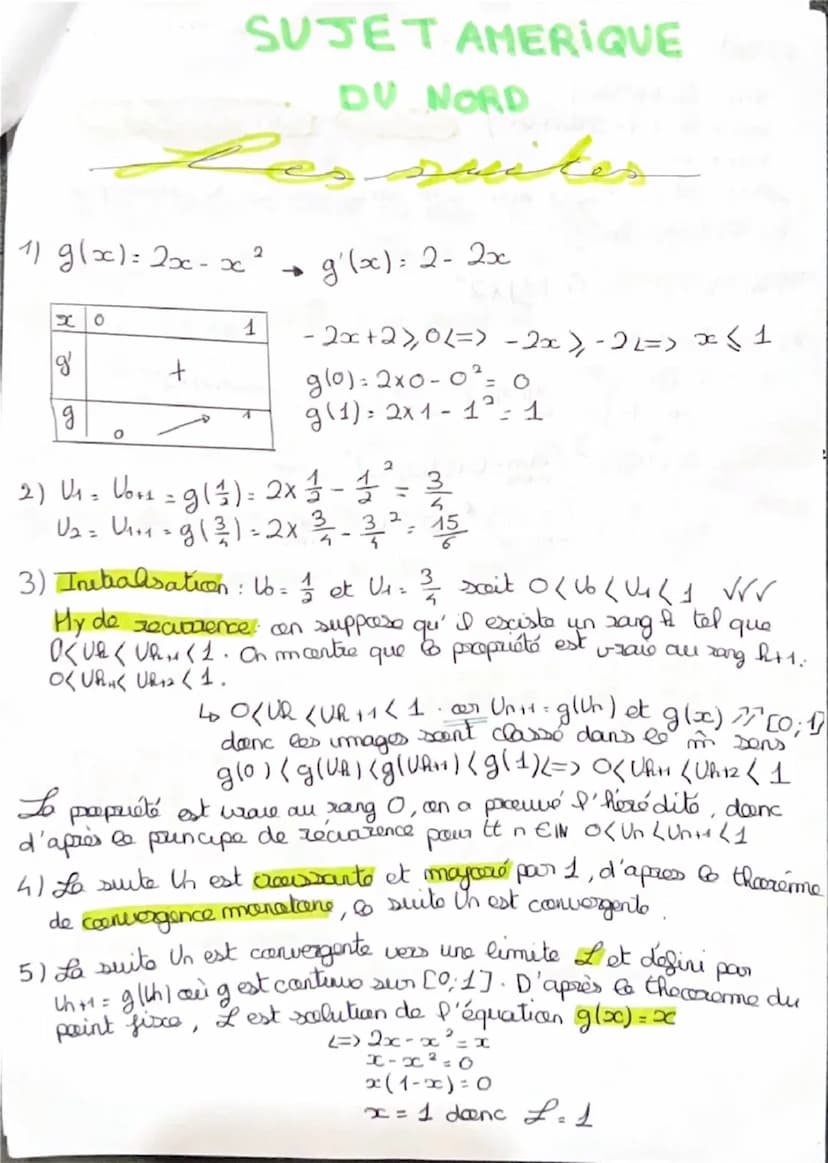 SUJET AMERIQUE
DU NORD
Les suites
1) g(x) = 2x - x² → g'(x) = 2 - 2x
x | 0 1
g' | +
g | 0 ↗ 1
- 2x + 2 ⩾ 0 <=> - 2x ⩾ - 2 <=> x ⩽ 1
g(0) = 2x0 - 0² = 0
g(1) = 2x1 - 1² = 1
2) U1 = U0+1 = g(1/2) = 2x 1/2 - 1/2² = 3/4
U2 = U1+1 = g(3/4) = 2x 3/4 - 3/4² = 15/6
3) Initialisation : U0 = 1/2 et U1 = 3/4 soit 0 < U0 < U1 < 1 √√√
Hy de recurrence : on suppose qu'il existe un rang k tel que
0 < Uk < Uk+1 < 1. On montre que la propriété est vraie au rang k+1.
0 < Uk+1 < Uk+2 < 1.
↳ 0 < Uk < Uk+1 < 1. car Un+1 = g(Un) et g(x) ↗↗ [0;1]
donc les images sont classé dans le m̂ sens
g(0) < g(Uk) < g(Uk+1) < g(1) <=> 0 < Uk+1 < Uk+2 < 1
La propriété est vraie au rang 0, on a prouvé l'hérédité, donc
d'après le principe de récurrence pour tt n ∈ IN 0 < Un < Un+1 < 1
4) La suite Un est croissante et majoré par 1, d'apres le théorème
de convergence monotone, la suite Un est convergente.
5) La suite Un est convergente vers une limite L et défini par
Un+1 = g(Un) où g est continue sur [0;1]. D'après le theoreme du
point fixe, L est solution de l'équation g(x) = x
<=> 2x - x² = x
x - x² = 0
x(1-x) = 0
x = 1 donc L = 1